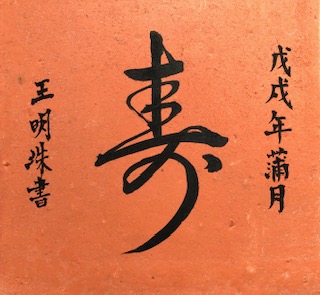 戊戌年蒲月
寿
王明珠書